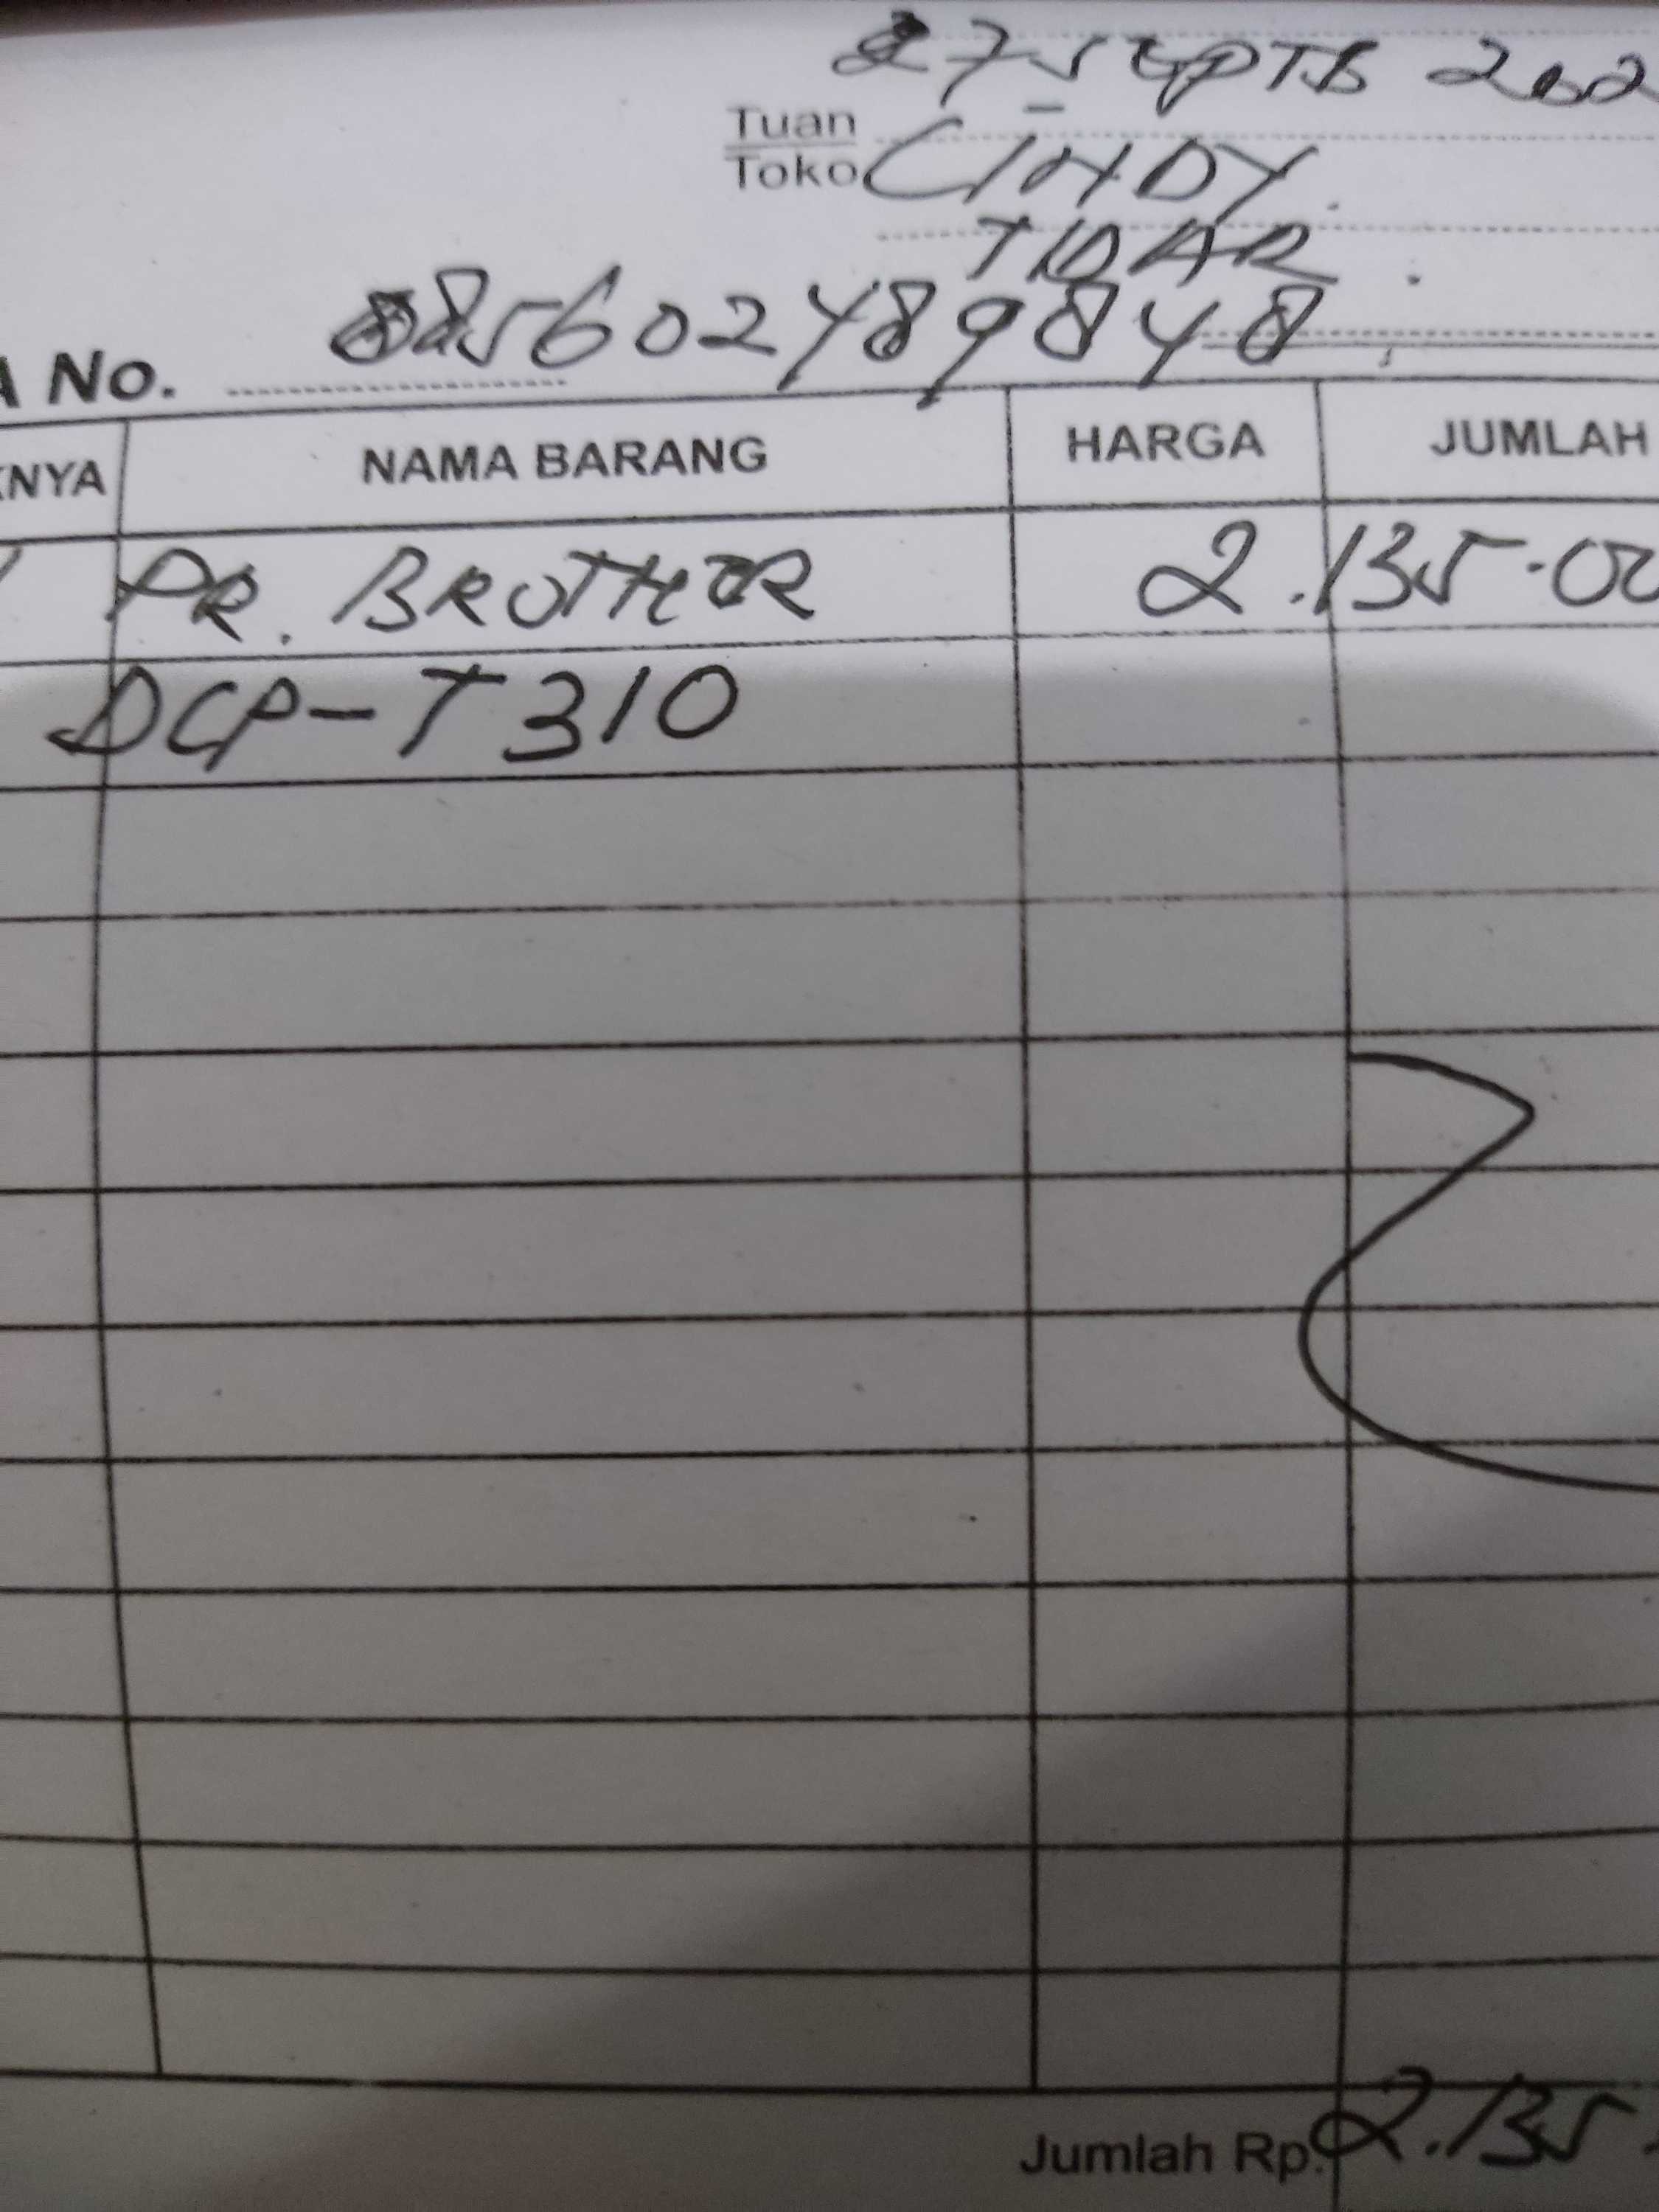 27 SEPTB 202
Tuan
Toko CINDY.
TIDAR.
085602489848
A No.
KNYA NAMA BARANG HARGA JUMLAH
PR. BROTHER 2.135.00
DCP-T310
Jumlah Rp. 2.135.